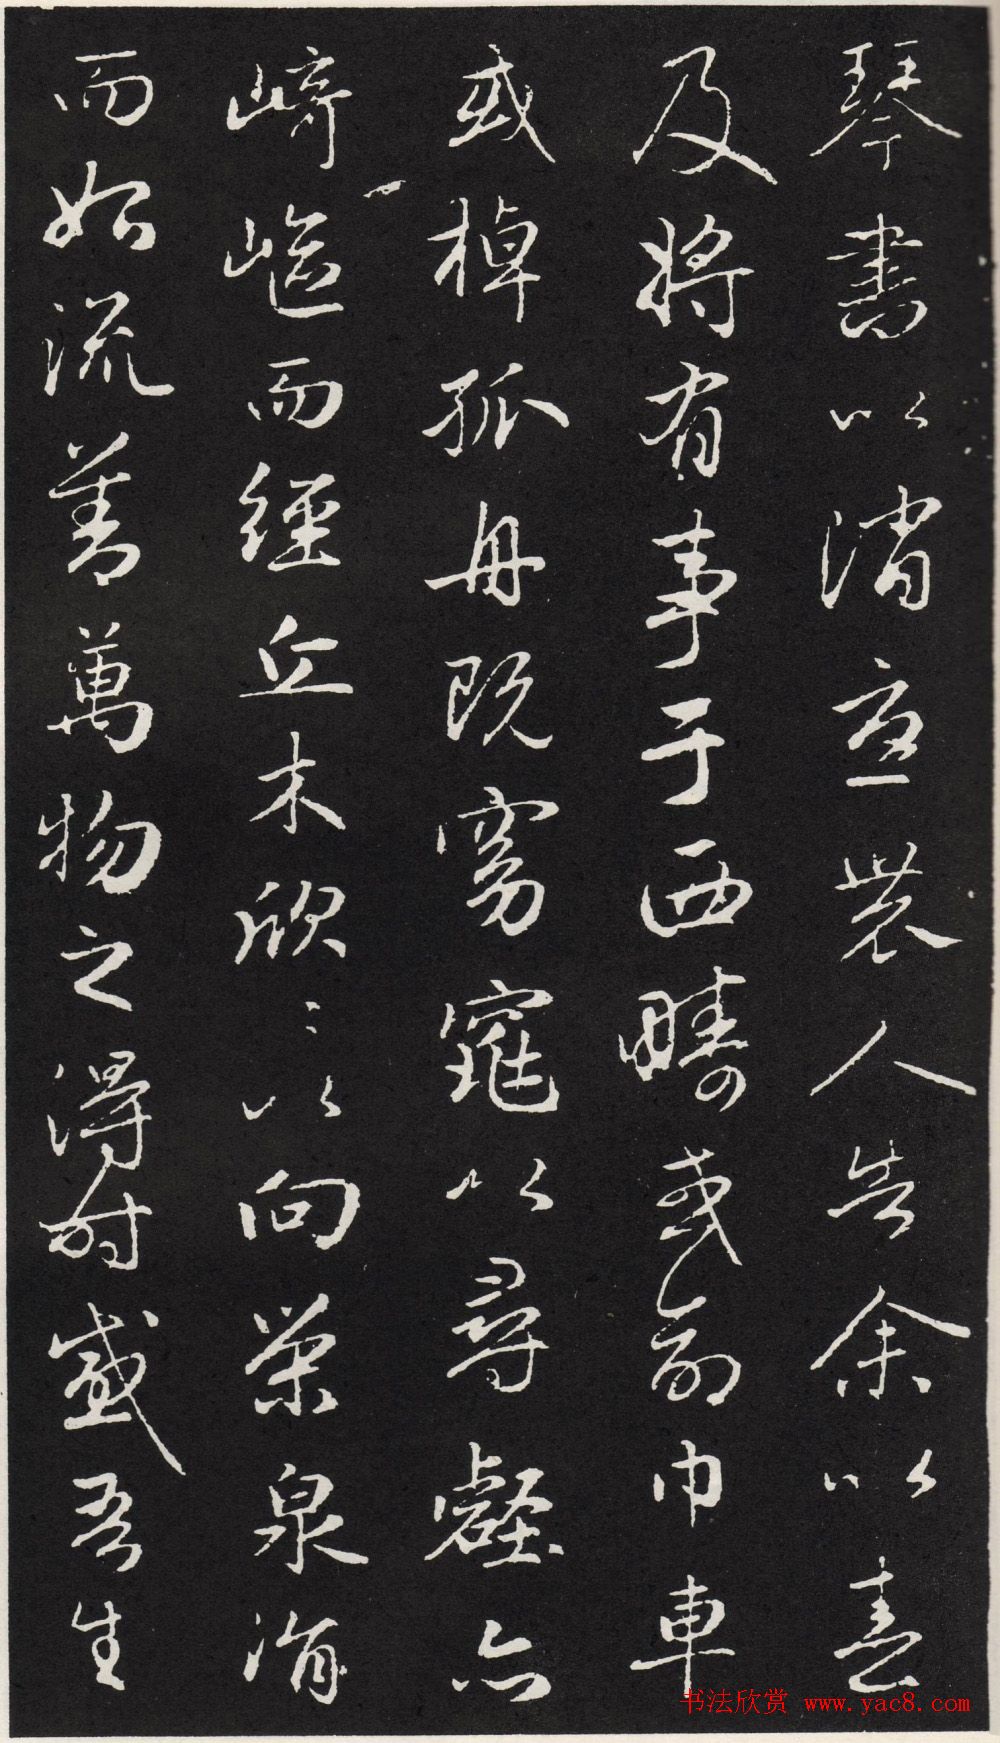 琴書以消憂農人告余以春
及將有事于西疇或命巾車
或棹孤舟既窈窕以尋壑亦
崎嶇而經丘木欣〻以向榮泉涓
而始流善萬物之得時感吾生
书法欣赏 www.yac8.com